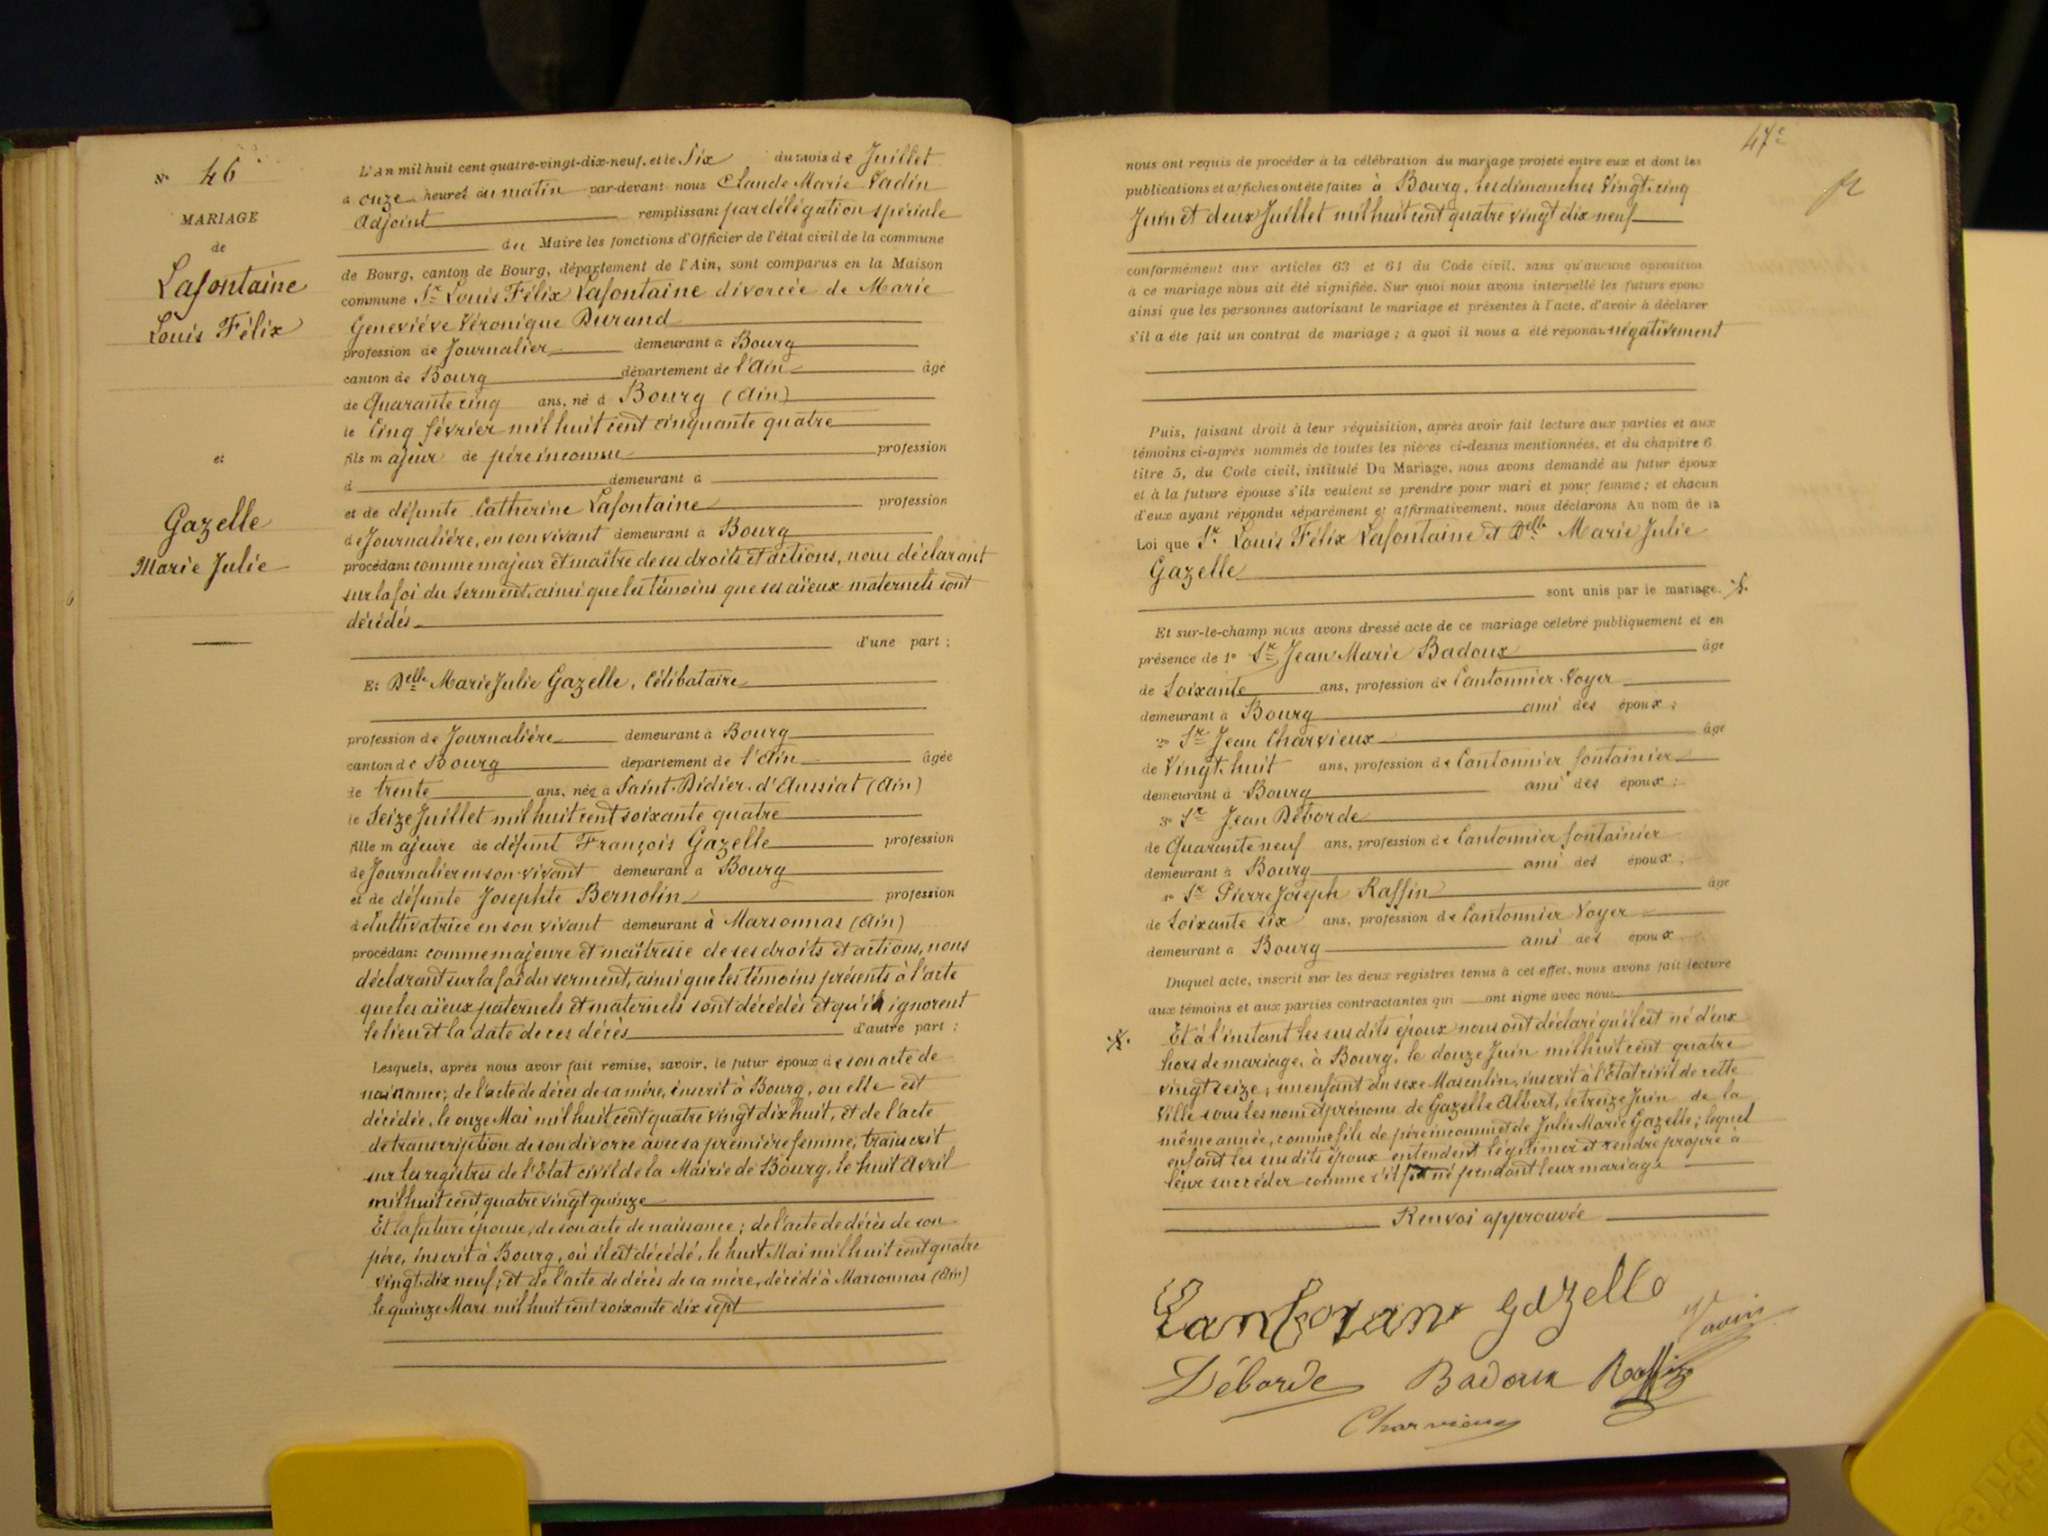 N° 46
MARIAGE
de
Lafontaine
Louis Félix
et
Gazelle
Marie Julie
L'an mil huit cent quatre-vingt-dix-neuf, et le Six du mois de Juillet
à onze heures du matin par-devant nous Claude Marie Vadin
Adjoint remplissant par délégation spéciale
du Maire les fonctions d'Officier de l'état civil de la commune
de Bourg, canton de Bourg, département de l'Ain, sont comparus en la Maison
commune Sr Louis Félix Lafontaine divorcée de Marie
Geneviève Véronique Durand
profession de Journalier demeurant à Bourg
canton de Bourg département de l'Ain âgé
de Quarante cinq ans, né à Bourg (Ain)
le Cinq février mil huit cent cinquante quatre
fils majeur de père inconnu profession
d demeurant à
et de défunte Catherine Lafontaine profession
de Journalière, en son vivant demeurant à Bourg
procédant comme majeur et maître de ses droits et actions, nous déclarant
sur la foi du serment, ainsi que les témoins que ses aïeux maternels sont
décédés
d'une part ;
Et Delle Marie Julie Gazelle, Célibataire
profession de Journalière demeurant à Bourg
canton de Bourg département de l'Ain âgée
de trente ans, née à Saint-Didier-d'Aussiat (Ain)
le Seize Juillet mil huit cent soixante quatre
fille majeure de défunt François Gazelle profession
de Journalier en son vivant demeurant à Bourg
et de défunte Josephte Bernolin profession
de Cultivatrice en son vivant demeurant à Marsonnas (Ain)
procédant comme majeure et maîtresse de ses droits et actions, nous
déclarant sur la foi du serment, ainsi que les témoins présents à l'acte
que les aïeux paternels et maternels sont décédés et qu'il ignorent
le lieu et la date de ces décès d'autre part ;
Lesquels, après nous avoir fait remise, savoir, le futur époux de son acte de
naissance ; de l'acte de décès de sa mère, inscrit à Bourg, ou elle est
décédée, le onze Mai mil huit cent quatre vingt dix huit, et de l'acte
de transcription de son divorce avec sa première femme, transcrit
sur les registres de l'Etat civil de la Mairie de Bourg, le huit Avril
mil huit cent quatre vingt quinze
Et la future épouse, de son acte de naissance ; de l'acte de décès de son
père, inscrit à Bourg, où il est décédé, le huit Mai mil huit cent quatre
vingt-dix neuf ; et de l'acte de décès de sa mère, décédé à Marsonnas (Ain)
le quinze Mars mil huit cent soixante dix sept
47e
nous ont requis de procéder à la célébration du mariage projeté entre eux et dont les
publications et affiches ont été faites à Bourg, les dimanches Vingt-cinq
Juin et deux Juillet mil huit cent quatre vingt dix neuf
conformément aux articles 63 et 64 du Code civil, sans qu'aucune opposition
à ce mariage nous ait été signifiée. Sur quoi nous avons interpellé les futurs époux
ainsi que les personnes autorisant le mariage et présentes à l'acte, d'avoir à déclarer
s'il a été fait un contrat de mariage ; à quoi il nous a été répondu négativement
Puis, faisant droit à leur réquisition, après avoir fait lecture aux parties et aux
témoins ci-après nommés de toutes les pièces ci-dessus mentionnées, et du chapitre 6
titre 5, du Code civil, intitulé Du Mariage, nous avons demandé au futur époux
et à la future épouse s'ils veulent se prendre pour mari et pour femme ; et chacun
d'eux ayant répondu séparément et affirmativement, nous déclarons Au nom de la
Loi que Sr Louis Félix Lafontaine et Delle Marie Julie
Gazelle
sont unis par le mariage.
Et sur-le-champ nous avons dressé acte de ce mariage célébré publiquement et en
présence de 1° Sr Jean Marie Badoux âgé
de Soixante ans, profession de Cantonnier-Voyer
demeurant à Bourg ami des époux ;
2° Sr Jean Charvieux âgé
de Vingt-huit ans, profession de Cantonnier fontainier
demeurant à Bourg ami des époux ;
3° Sr Jean Déborde
de Quarante neuf ans, profession de Cantonnier fontainier
demeurant à Bourg ami des époux ;
4° Sr Pierre Joseph Raffin âgé
de Soixante six ans, profession de Cantonnier Voyer
demeurant à Bourg ami des époux.
Duquel acte, inscrit sur les deux registres tenus à cet effet, nous avons fait lecture
aux témoins et aux parties contractantes qui ont signé avec nous
Et à l'instant les susdits époux nous ont déclaré qu'il est né d'eux
hors de mariage, à Bourg, le douze Juin mil huit cent quatre
vingt seize, un enfant du sexe Masculin, inscrit à l'Etat civil de cette
Ville sous les nom et prénoms de Gazelle Albert, le treize Juin de la
même année, comme fils de père inconnu et de Julie Marie Gazelle ; lequel
enfant les susdits époux entendent légitimer et rendre propre à
leur succéder comme s'il fût né pendant leur mariage
Renvoi approuvée
Gazelle
Vadin
Déborde Badoux Raffin
Charvieux